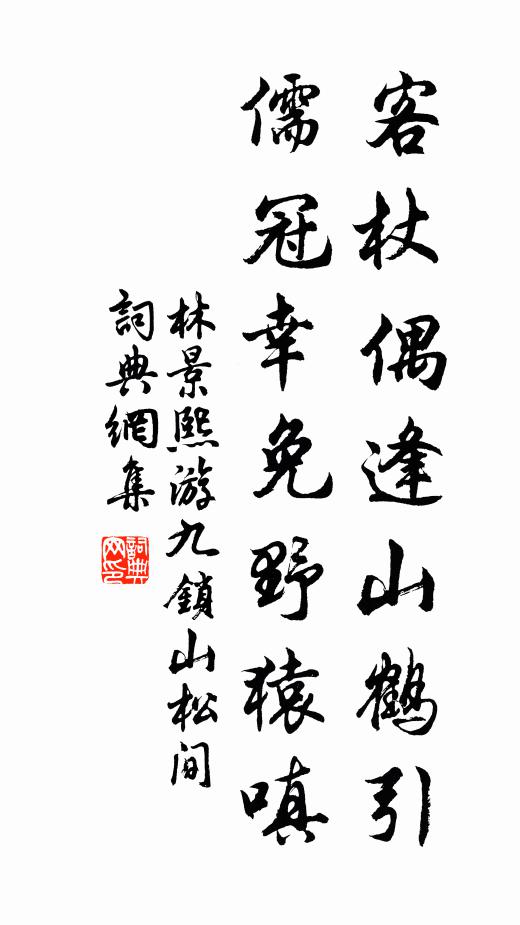 客杖偶逢山鶴引
儒冠幸免野猿嗔
林景熙游九鎖山松间
詞典網集
詞典网印